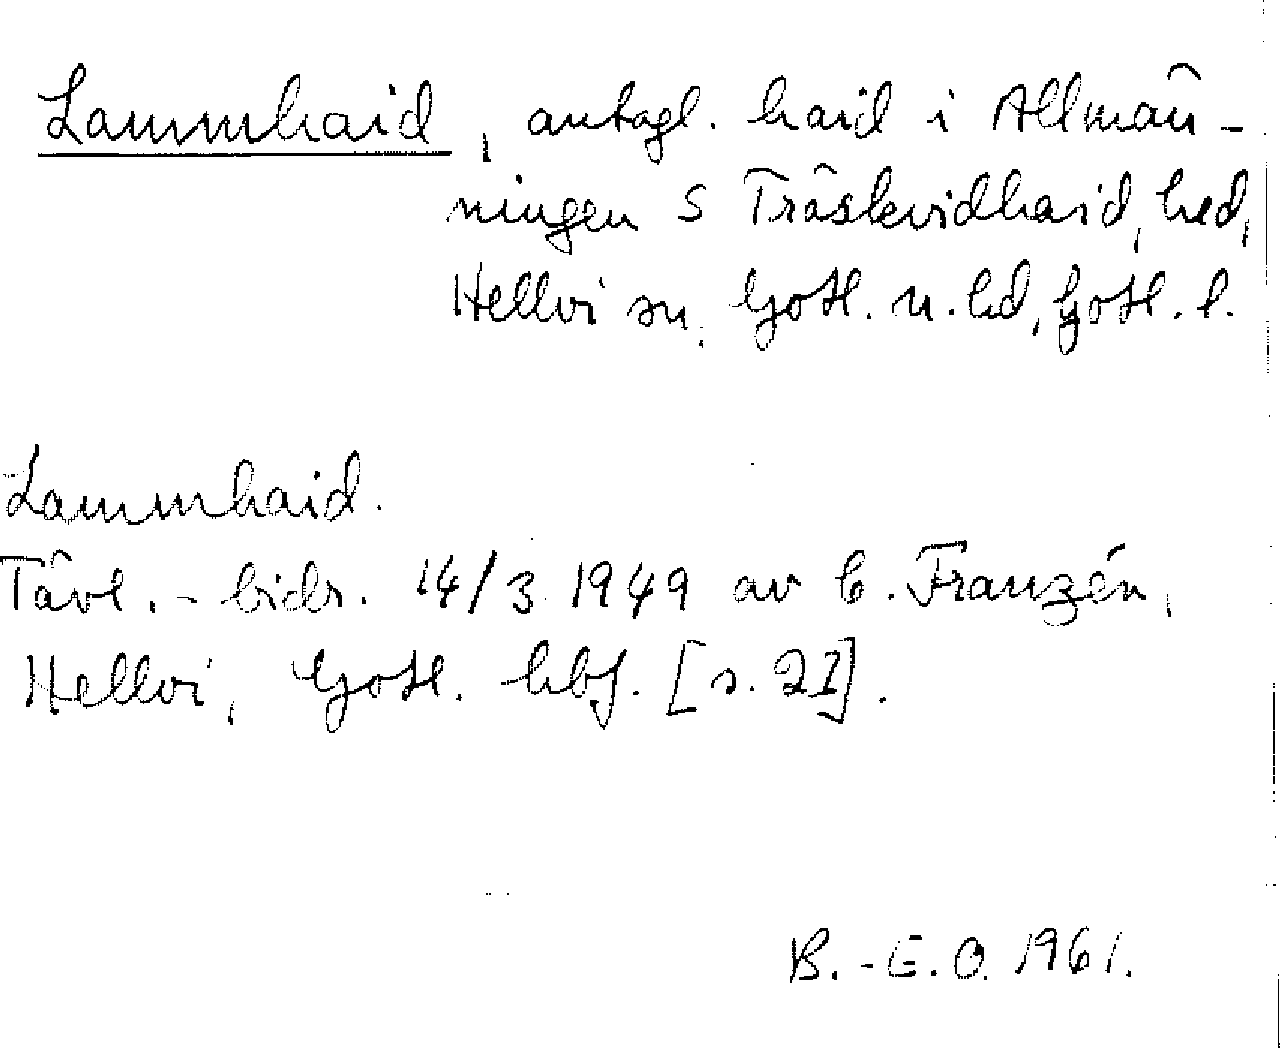 Lammhaid, antagl. haid i Allmän-
ningen S Träskvidhaid, hed,
Hellvi sn, Gotl. n. hd, Gotl. l.
Lammhaid.
Tävl. - bidr. 14/3 1949 av C. Franzén,
Hellvi, Gotl. hbf. [s. 21].
B.-E.O. 1961.